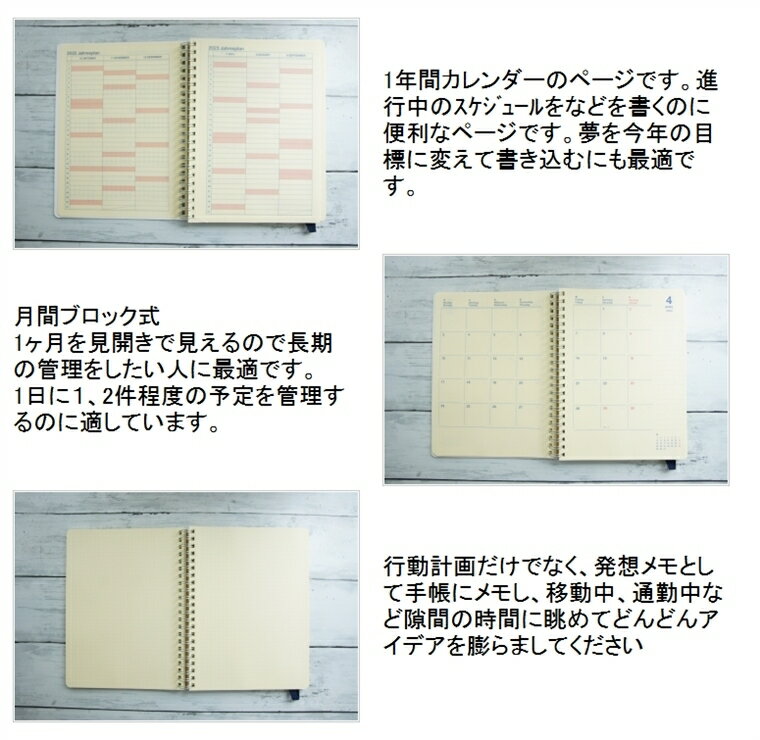 1年間カレンダーのページです。進
行中のｽｹｼﾞｭｰﾙをなどを書くのに
便利なページです。夢を今年の目
標に変えて書き込むにも最適で
す。
月間ブロック式
1ヶ月を見開きで見えるので長期
の管理をしたい人に最適です。
1日に１、2件程度の予定を管理す
るのに適しています。
4
行動計画だけでなく、発想メモとし
て手帳にメモし、移動中、通勤中な
ど隙間の時間に眺めてどんどんア
イデアを膨らましてください